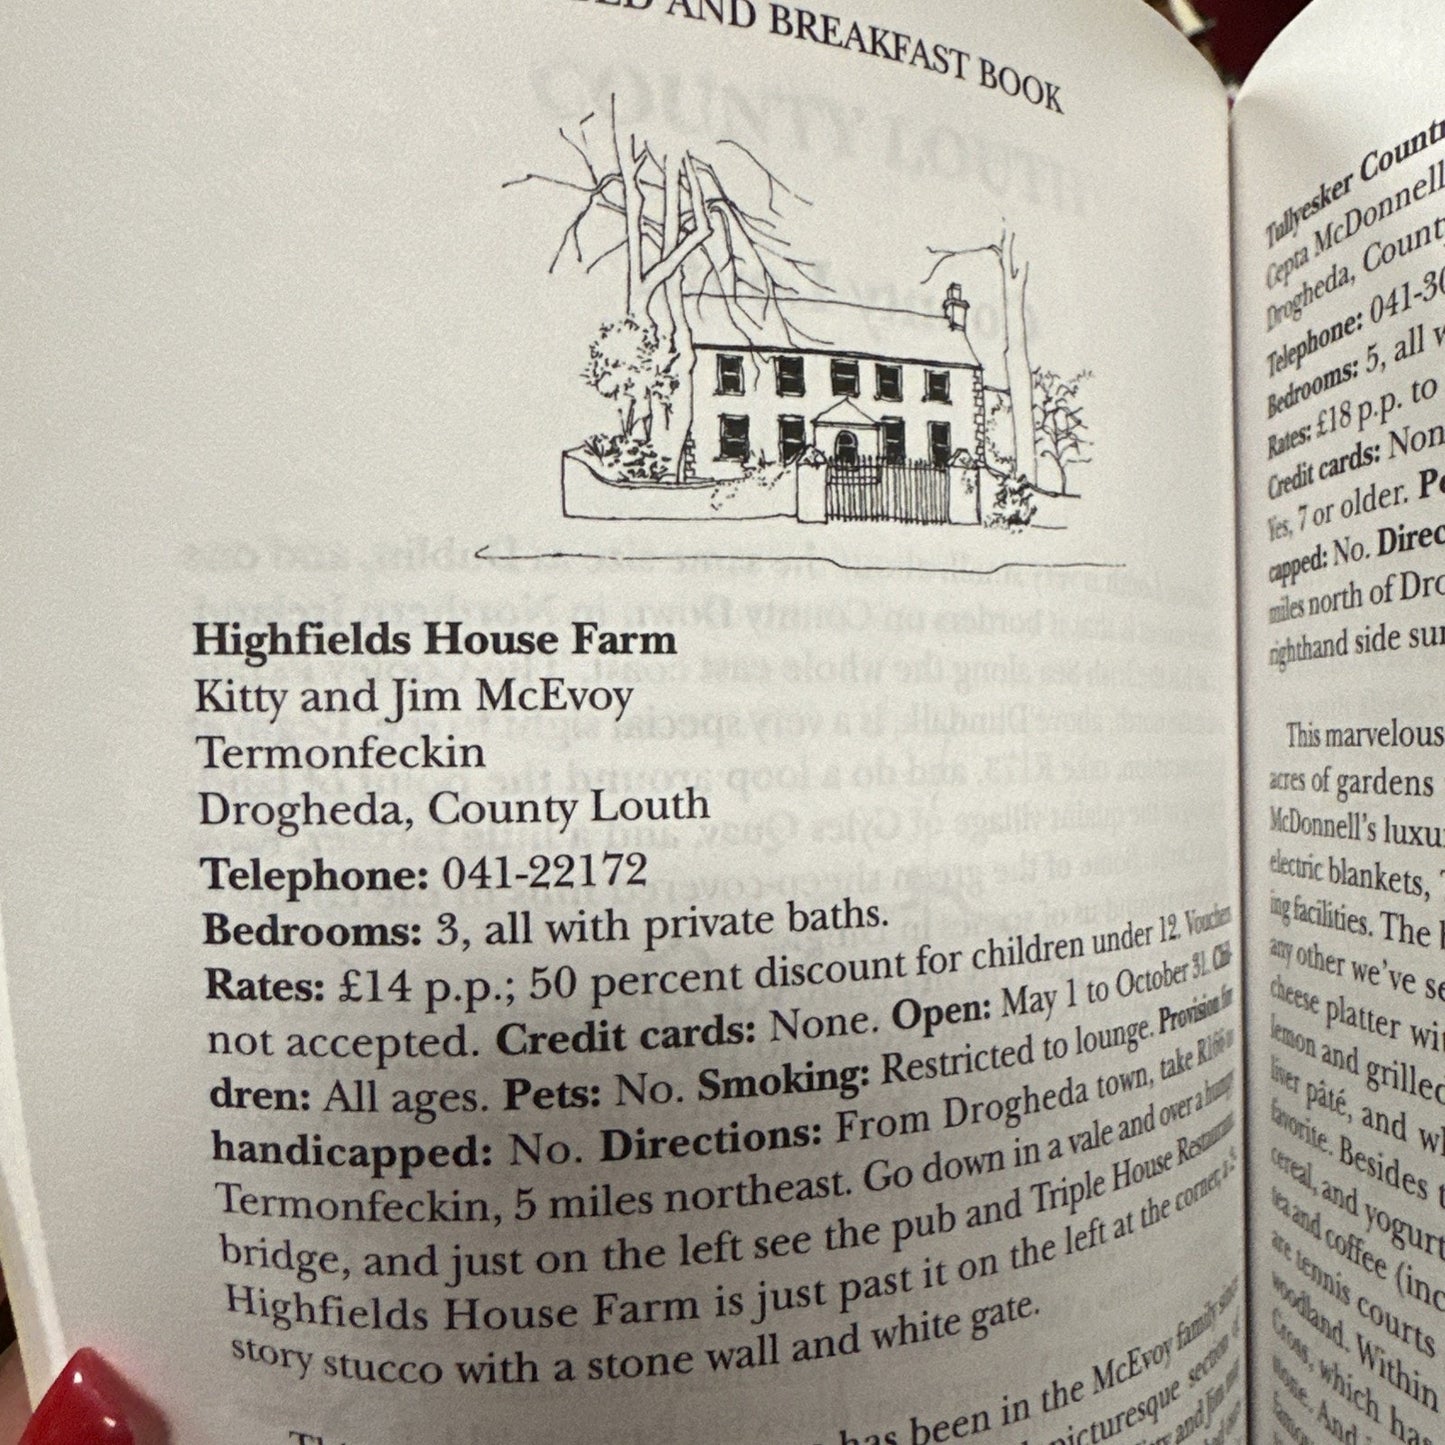 AND BREAKFAST BOOK
Highfields House Farm
Kitty and Jim McEvoy
Termonfeckin
Drogheda, County Louth
Telephone: 041-22172
Bedrooms: 3, all with private baths.
Rates: £14 p.p.; 50 percent discount for children under 12. Vouchers
not accepted. Credit cards: None. Open: May 1 to October 31. Chil-
dren: All ages. Pets: No. Smoking: Restricted to lounge. Provision for
handicapped: No. Directions: From Drogheda town, take R166 to
Termonfeckin, 5 miles northeast. Go down in a vale and over a hump
bridge, and just on the left see the pub and Triple House Restaurant.
Highfields House Farm is just past it on the left at the corner, a 2-
story stucco with a stone wall and white gate.
has been in the McEvoy family since
picturesque section of
and Jim
Tullyesker
Cepta McDonnell
Drogheda, County
Telephone: 041-30
Bedrooms: 5, all
Rates: £18 p.p. to
Credit cards:
Yes, 7 or older.
capped: No.
miles north of
righthand side
This marvelous
acres of gardens
McDonnell's
electric blankets,
ing facilities. The
any other we've
cheese platter
lemon and grilled
liver pâté, and
favorite. Besides
cereal, and
tea and coffee
are tennis courts
woodland. Within
Cross, which
none. And